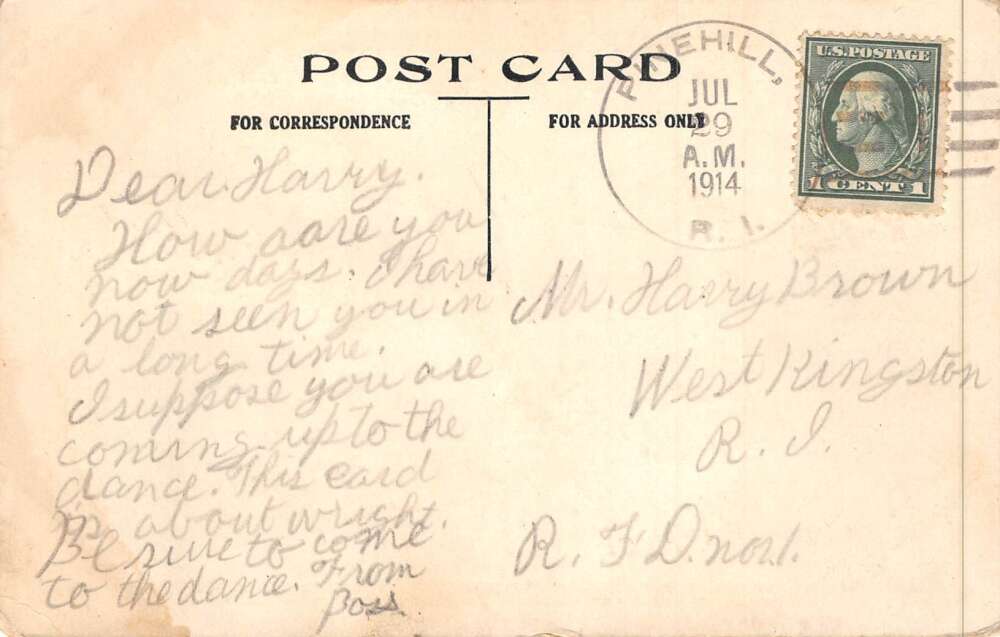 POST CARD
FOR CORRESPONDENCE
FOR ADDRESS ONLY
PINEHILL,
JUL
29
A.M.
1914
R. I.
U.S. POSTAGE
1 CENT 1
Dear Harry.
How aare you
now days. I have
not seen you in
a long time.
I suppose you are
coming up to the
dance. This card
is about wright.
Be sure to come
to the dance. From
Boss
Mr. Harry Brown
West Kingston
R. I.
R. F D. no. 1.